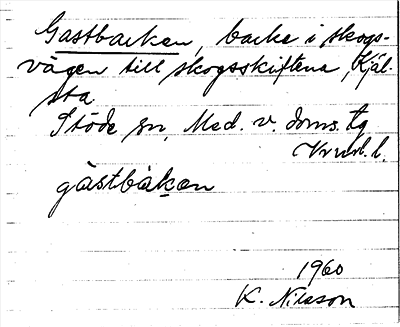 Gastbacken, backe i skogs-
vägen till skogsskiftena, Käl-
sta
Stöde sn, Med. v. doms. tg
l.
gàstbàkan
1960
K. Nilsson